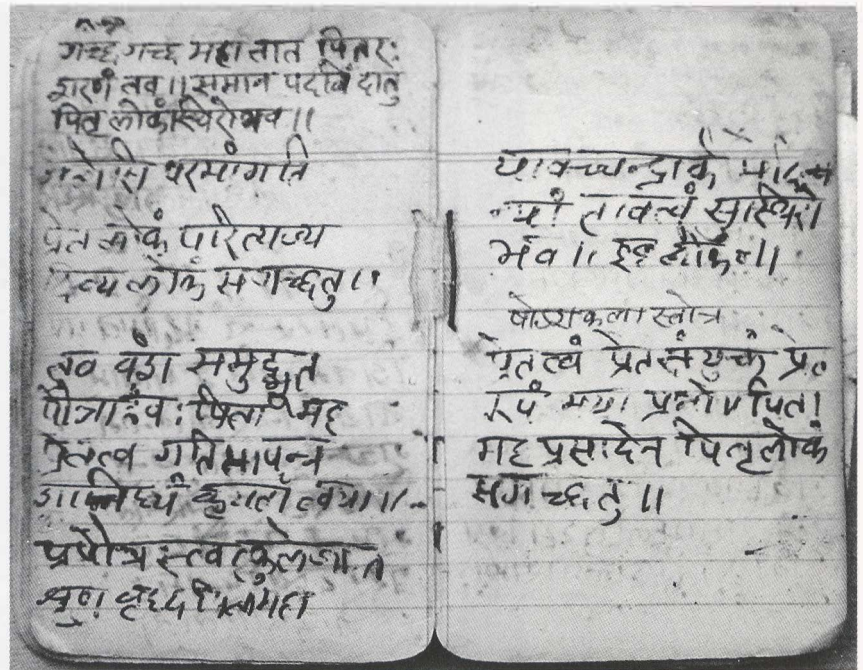 गच्छ गच्छ महातात पितरः
शरणं तव ॥ समान पदवीं दातु
पितृ लोकंस्थिरोभव ॥
गतोसि परमांगति
प्रेत लोकं परित्यज्य
दिव्य लोकं सगच्छतु ॥
तव वंश समुद्भूत
पौत्राहंव : पिता मह
प्रेतत्व गतिमापन्न
त्वया ॥
प्रपौत्र स्त्वत्कुलेजात
श्रुणु
यावच्चन्द्रार्के
तावत्वं सुस्थिरो
भव ॥ इह लोकं ॥
षोडशकला स्तोत्र
प्रेतत्वं प्रेतसंयुक्तं प्रेत
रूपं मया प्रभो ॥ पिता
मह प्रसादेन पितृलोकं
सगच्छतु ॥